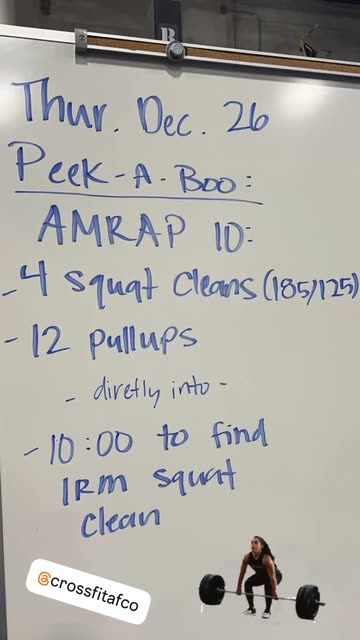 Thur. Dec. 26
Peek-A-Boo:
AMRAP 10:
-4 squat cleans (185/125)
-12 pullups
- diretly into -
-10:00 to find
1RM squat
clean
@crossfitafco